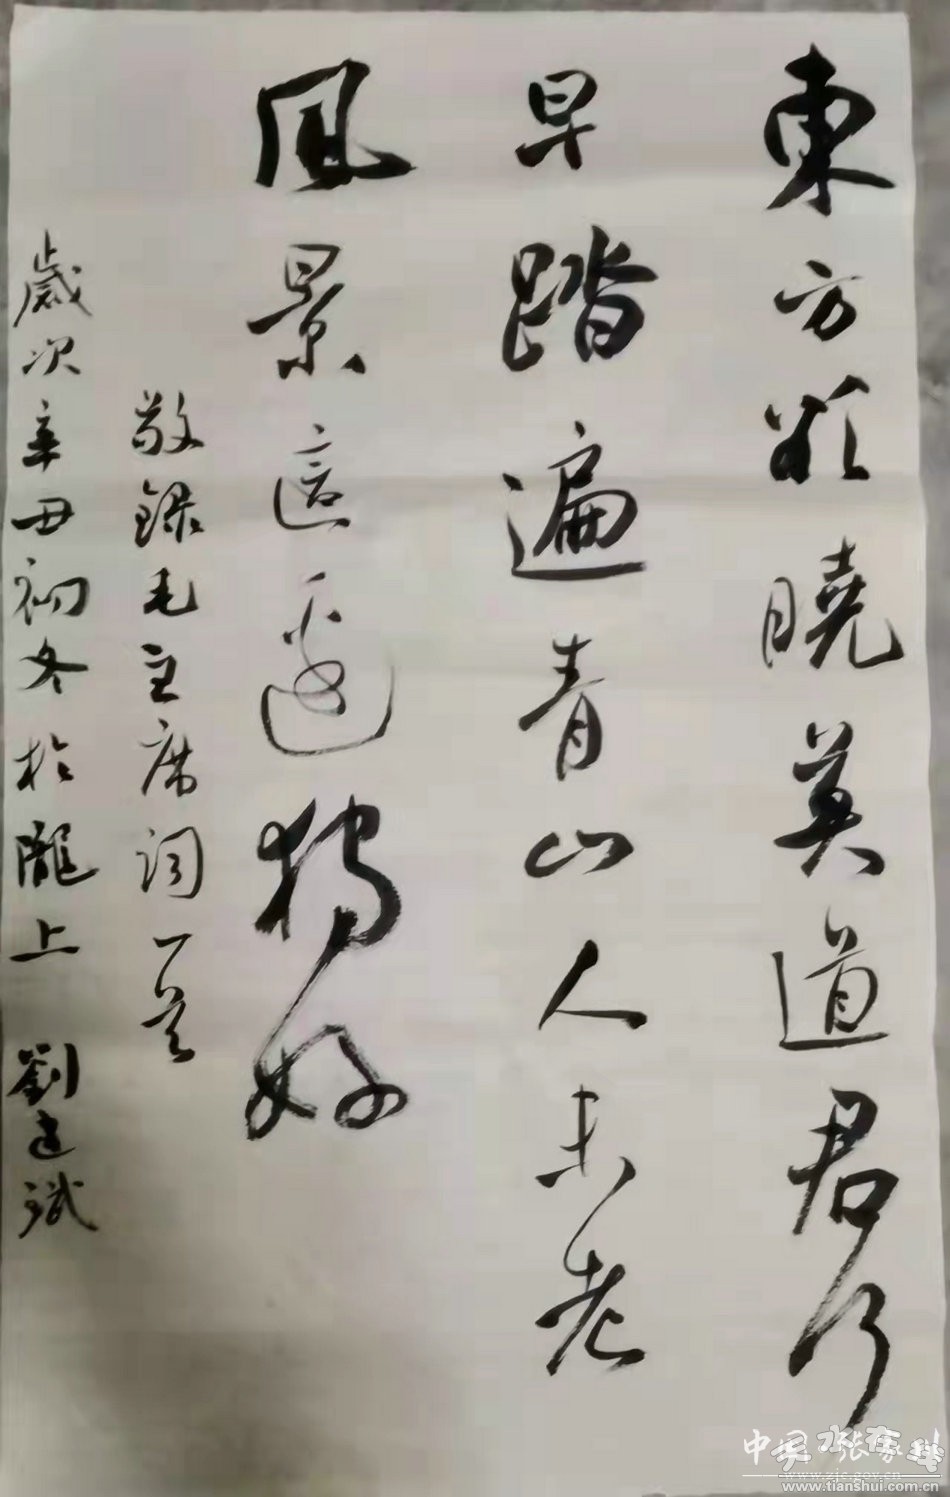 東方欲曉莫道君行
早踏遍青山人未老
風景這邊獨好
敬録毛主席词一首
歲次辛丑初冬於隴上 劉建識
www.zjc.gov.cn
www.tianshui.com.cn